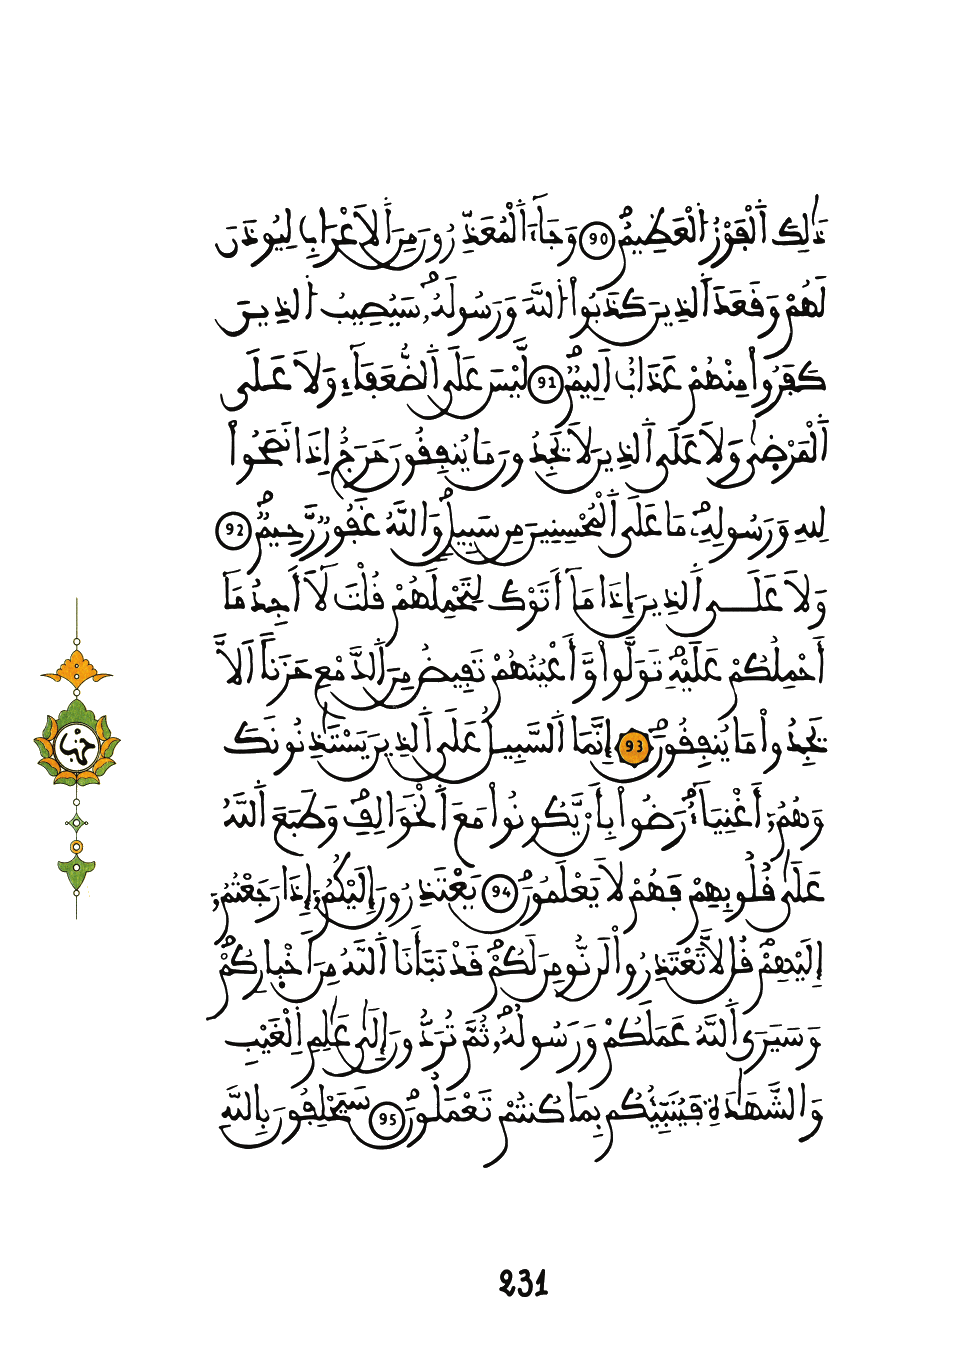 ذَٰلِكَ اَ۬لْفَوْزُ اُ۬لْعَظِيمُ 90 وَجَآءَ اَ۬لْمُعَذِّرُونَ مِنَ اَ۬لَاعْرَابِ لِيُوذَنَ
لَهُمْ وَقَعَدَ اَ۬لذِينَ كَذَبُواْ اُ۬للَّهَ وَرَسُولَهُۥ سَيُصِيبُ اُ۬لذِينَ
كَفَرُواْ مِنْهُمْ عَذَابٌ اَلِيمٌ 91 لَّيْسَ عَلَى اَ۬لضُّعَفَآءِ وَلَا عَلَى
اَ۬لْمَرْض۪ىٰ وَلَا عَلَى اَ۬لذِينَ لَا يَجِدُونَ مَا يُنفِقُونَ حَرَجٌ اِذَا نَصَحُواْ
لِلهِ وَرَسُولِهِۦ مَا عَلَى اَ۬لْمُحْسِنِينَ مِن سَبِيلٍ وَاللَّهُ غَفُورٌ رَّحِيمٌ 92
وَلَا عَلَى اَ۬لذِينَ إِذَا مَآ أَتَوْكَ لِتَحْمِلَهُمْ قُلْتَ لَآ أَجِدُ مَآ
أَحْمِلُكُمْ عَلَيْهِ تَوَلَّواْ وَّأَعْيُنُهُمْ تَفِيضُ مِنَ اَ۬لدَّمْعِ حَزَناً اَلَّا
يَجِدُواْ مَا يُنفِقُونَ 93 إِنَّمَا اَ۬لسَّبِيلُ عَلَى اَ۬لذِينَ يَسْتَٰذِنُونَكَ
وَهُمُۥٓ أَغْنِيَآءُ رَضُواْ بِأَنْ يَّكُونُواْ مَعَ اَ۬لْخَوَالِفِ وَطَبَعَ اَ۬للَّهُ
عَلَىٰ قُلُوبِهِمْ فَهُمْ لَا يَعْلَمُونَ 94 يَعْتَذِرُونَ إِلَيْكُمُۥٓ إِذَا رَجَعْتُمُۥٓ
إِلَيْهِمْ قُل لَّا تَعْتَذِرُواْ لَن نُّومِنَ لَكُمْ قَدْ نَبَّأَنَا اَ۬للَّهُ مِنَ اَخْبِارِكُمْ
وَسَيَرَى اَ۬للَّهُ عَمَلَكُمْ وَرَسُولُهُۥ ثُمَّ تُرَدُّونَ إِلَىٰ عَٰلِمِ اِ۬لْغَيْبِ
وَالشَّهَٰدَةِ فَيُنَبِّئُكُم بِمَا كُنتُمْ تَعْمَلُونَ 95 سَيَحْلِفُونَ بِاللَّهِ
حزب
231